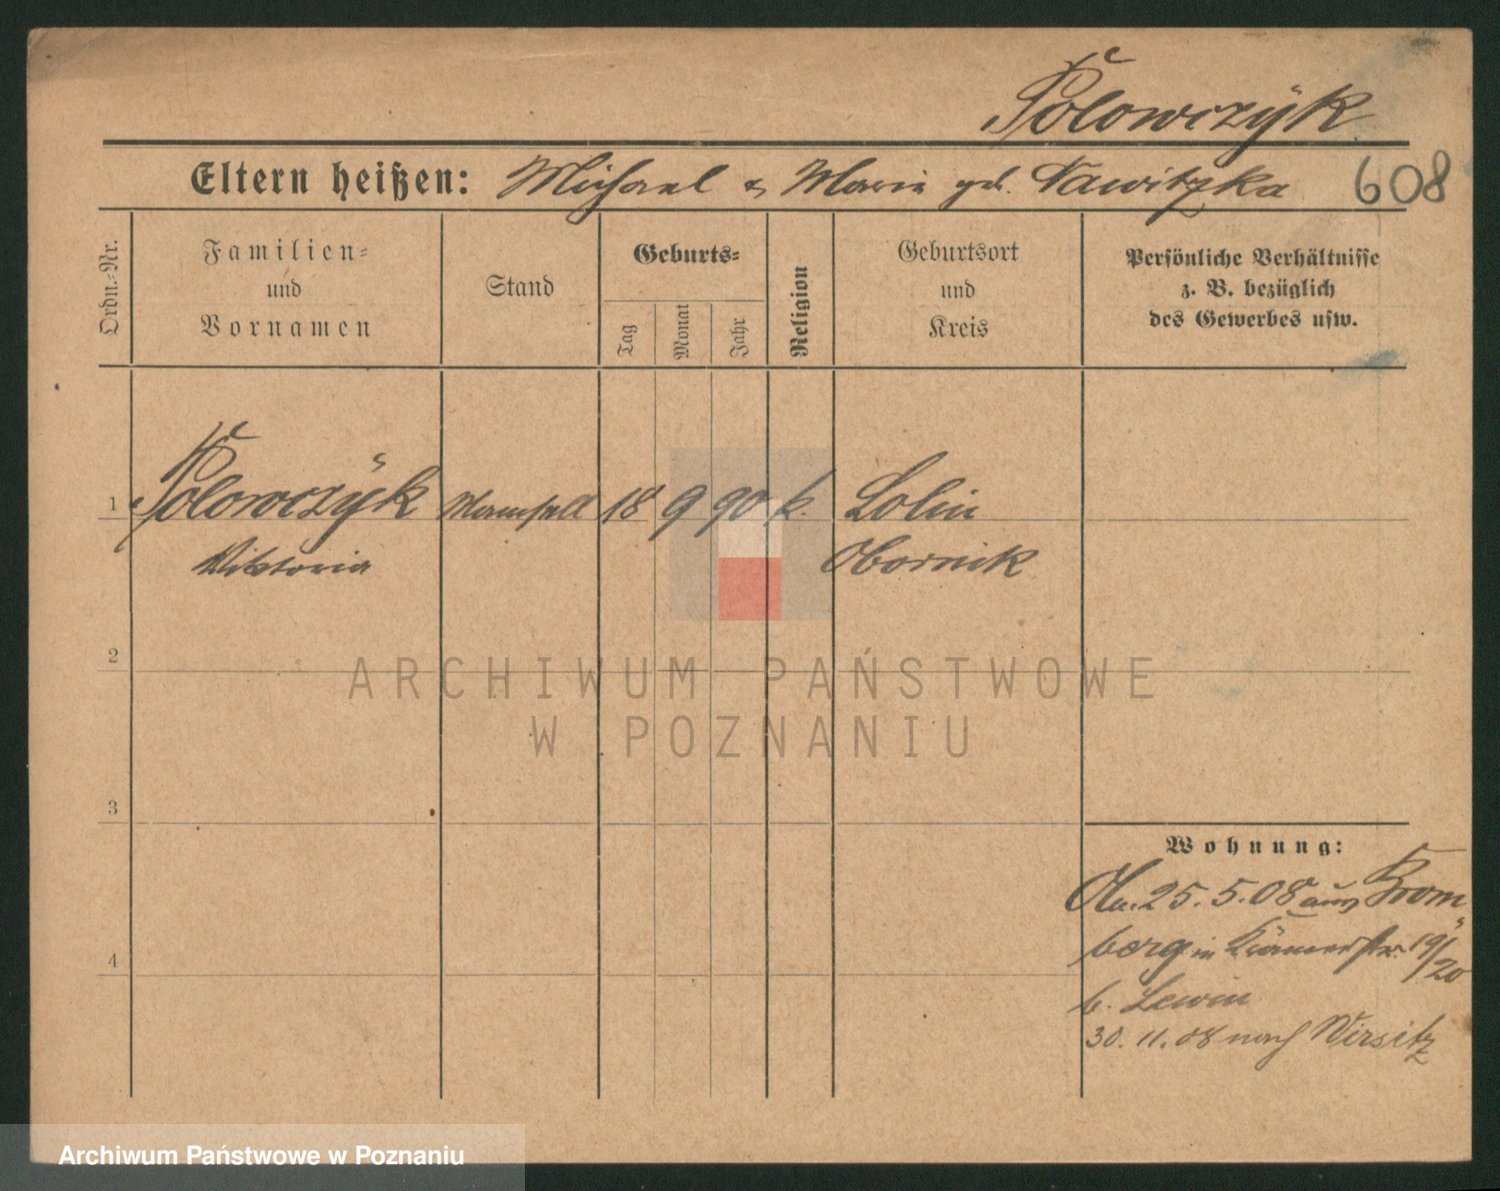 Polowczÿk
Eltern heißen: Michael & Marie geb. Nawitzka 608
Ordn.-Nr.
Familien-
und
Vornamen
Stand
Geburts-
Tag
Monat
Jahr
Religion
Geburtsort
und
Kreis
Persönliche Verhältnisse
z. B. bezüglich
des Gewerbes usw.
1 Polowczÿk Mamsell 18 9 90 k. Lolin
Viktoria Obornik
2
3
4
Wohnung:
25.5.08 aus Brom-
berg in Krämerstr. 19/20
b. Lewin
30. 11. 08 nach Wirsitz
ARCHIWUM PAŃSTWOWE
W POZNANIU
Archiwum Państwowe w Poznaniu